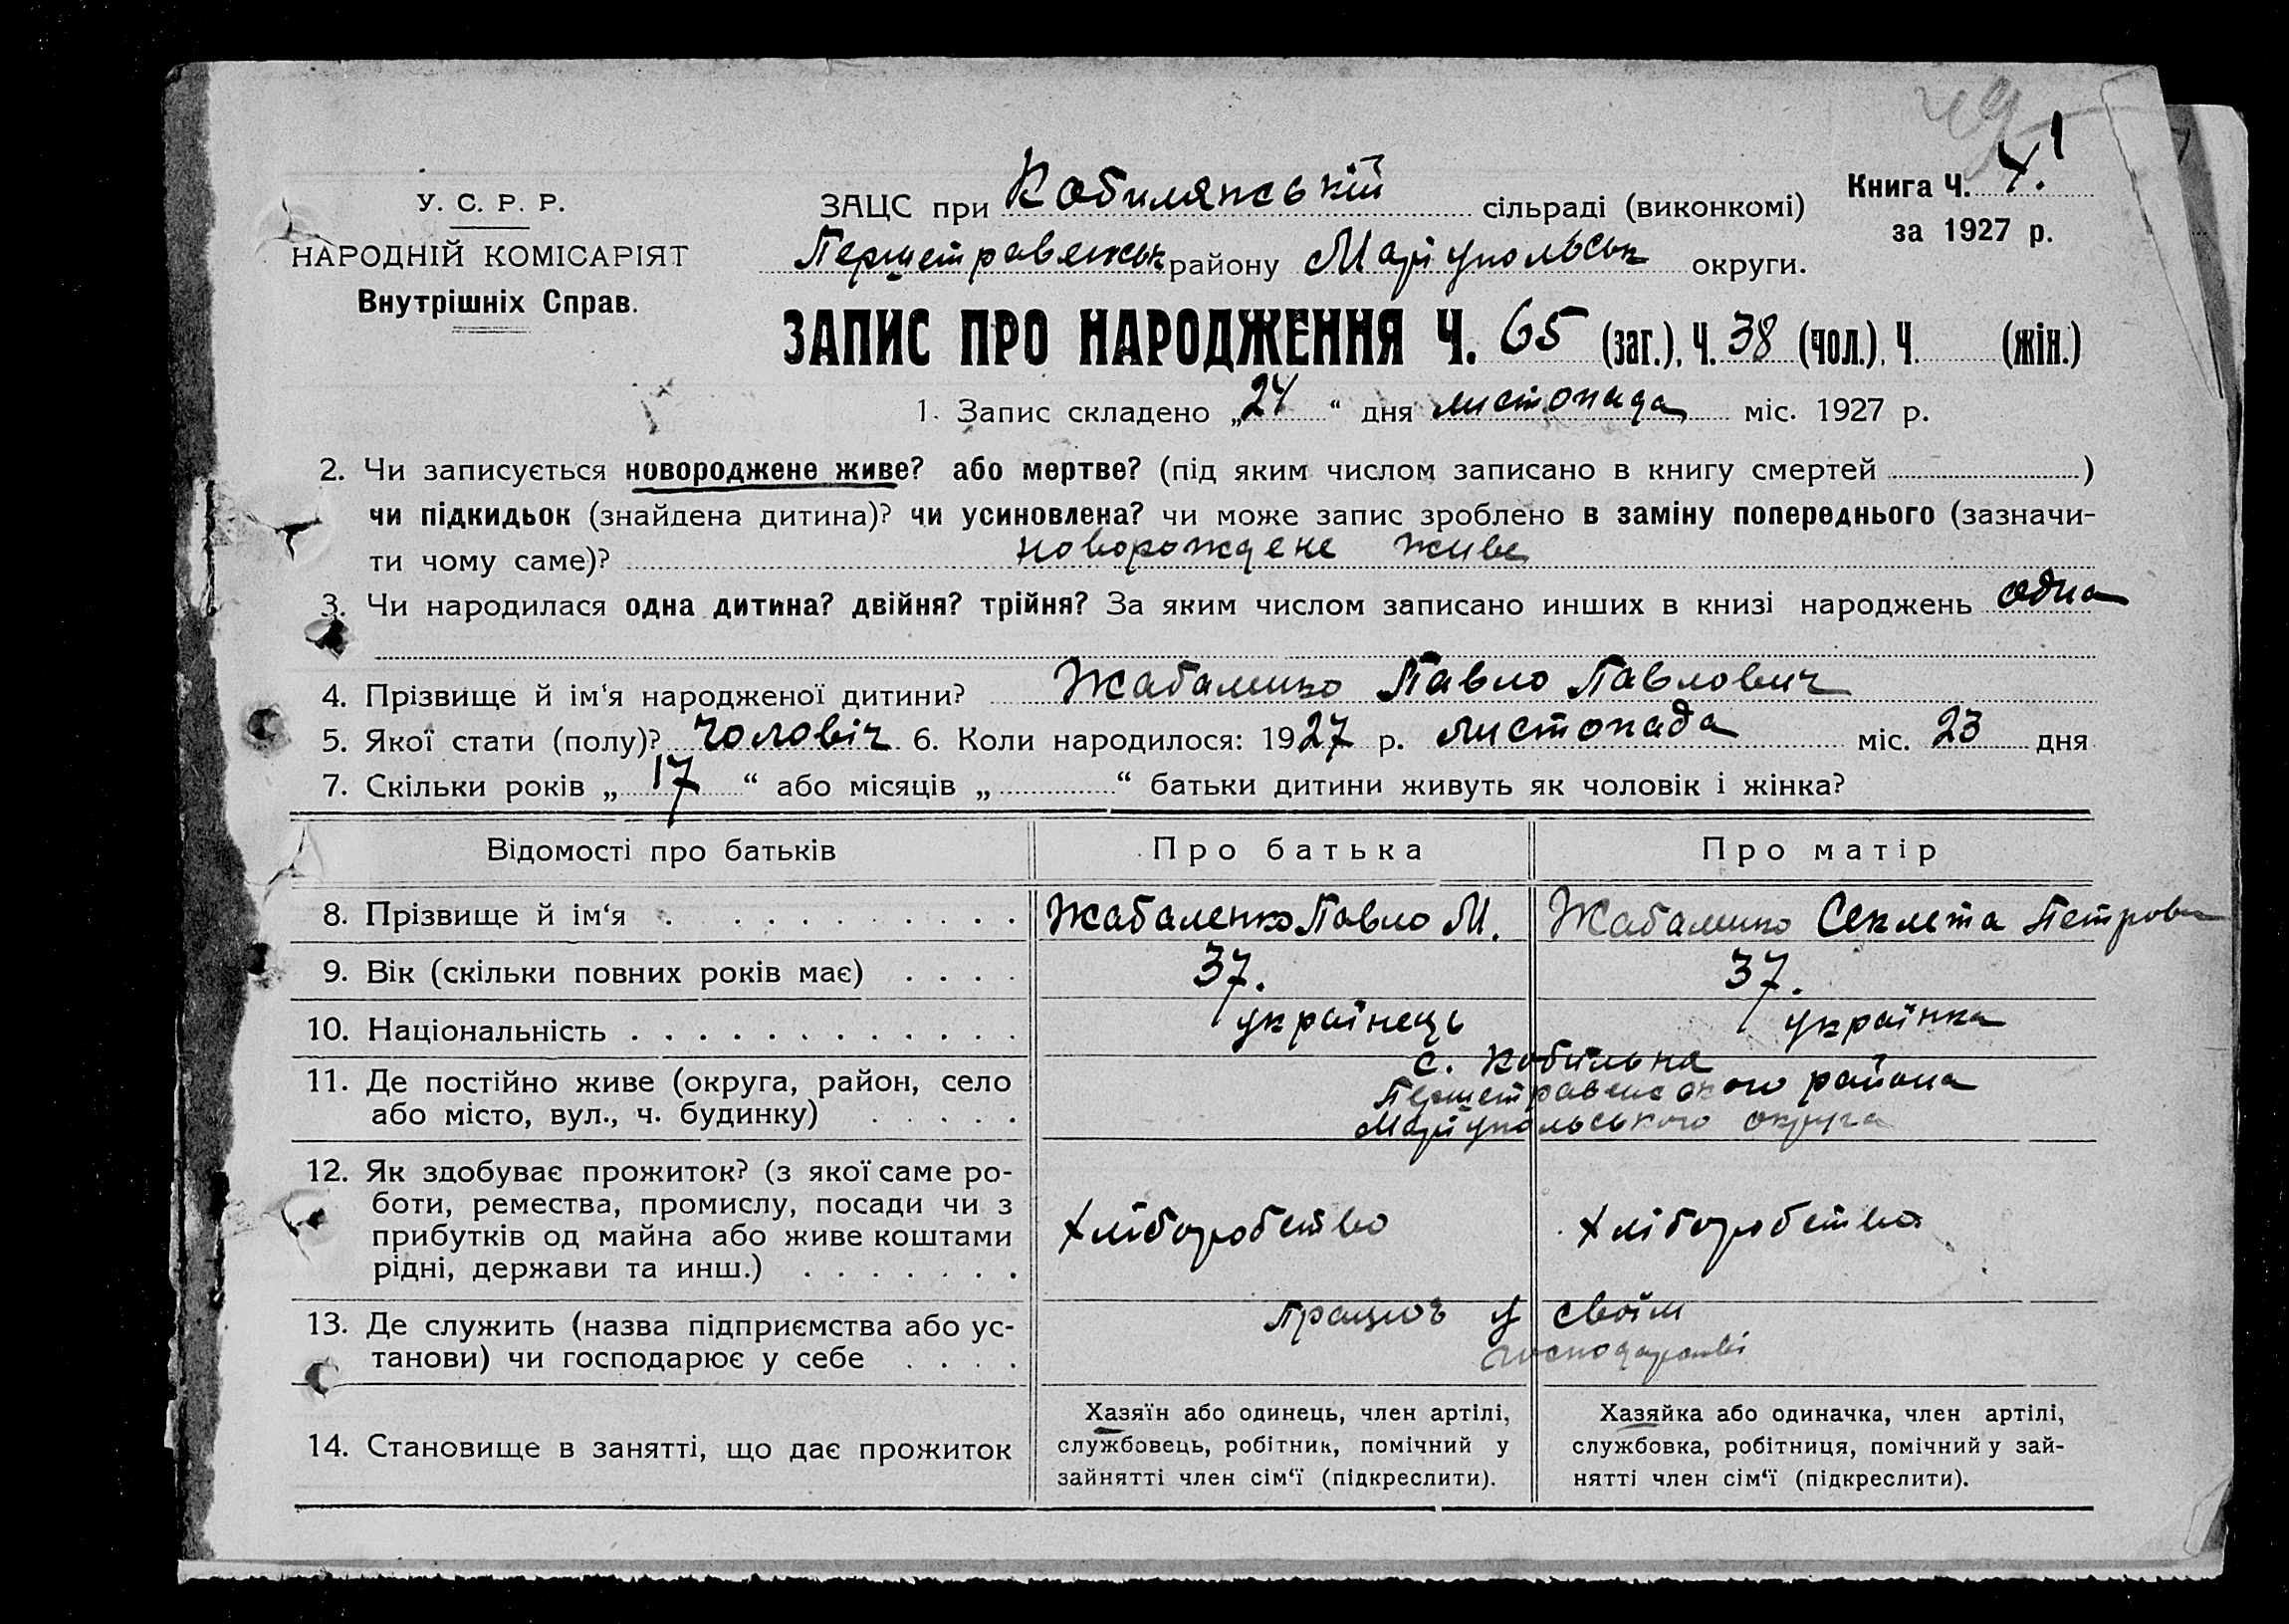 У. С. Р. Р.
НАРОДНІЙ КОМІСАРІЯТ
Внутрішніх Справ.
ЗАЦС при Кобилянській сільраді (виконкомі)
Першетравенськ району Маріупольськ округи.
Книга Ч. 4.
за 1927 р.
1
ЗАПИС ПРО НАРОДЖЕННЯ Ч. 65 (заг.), Ч. 38 (чол.), Ч. (жін.)
1. Запис складено „24“ дня листопада міс. 1927 р.
2. Чи записується новороджене живе? або мертве? (під яким числом записано в книгу смертей )
чи підкидьок (знайдена дитина)? чи усиновлена? чи може запис зроблено в заміну попереднього (зазначи-
ти чому саме)? новорождене живе
3. Чи народилася одна дитина? двійня? трійня? За яким числом записано инших в книзі народжень одна
4. Прізвище й ім‘я народженої дитини? Жабаленко Павло Павлович
5. Якої стати (полу)? чоловіч 6. Коли народилося: 1927 р. листопада міс. 23 дня
7. Скільки років „ 17 “ або місяців „ “ батьки дитини живуть як чоловік і жінка?
Відомості про батьків Про батька Про матір
8. Прізвище й ім‘я Жабаленко Павло М. Жабаленко Секлета Петровн
9. Вік (скільки повних років має) 37. 37.
10. Національність українець українка
11. Де постійно живе (округа, район, село
або місто, вул., ч. будинку)
с. Кобильна
Першетравенского района
Маріупольського округа
12. Як здобуває прожиток? (з якої саме ро-
боти, ремества, промислу, посади чи з
прибутків од майна або живе коштами
рідні, держави та инш.)
хліборобство хліборобство
13. Де служить (назва підприємства або ус-
танови) чи господарює у себе
працює у своїм
господарстві
14. Становище в занятті, що дає прожиток
Хазяїн або одинець, член артілі,
службовець, робітник, помічний у
зайнятті член сім‘ї (підкреслити).
Хазяйка або одиначка, член артілі,
службовка, робітниця, помічний у зай-
нятті член сім‘ї (підкреслити).